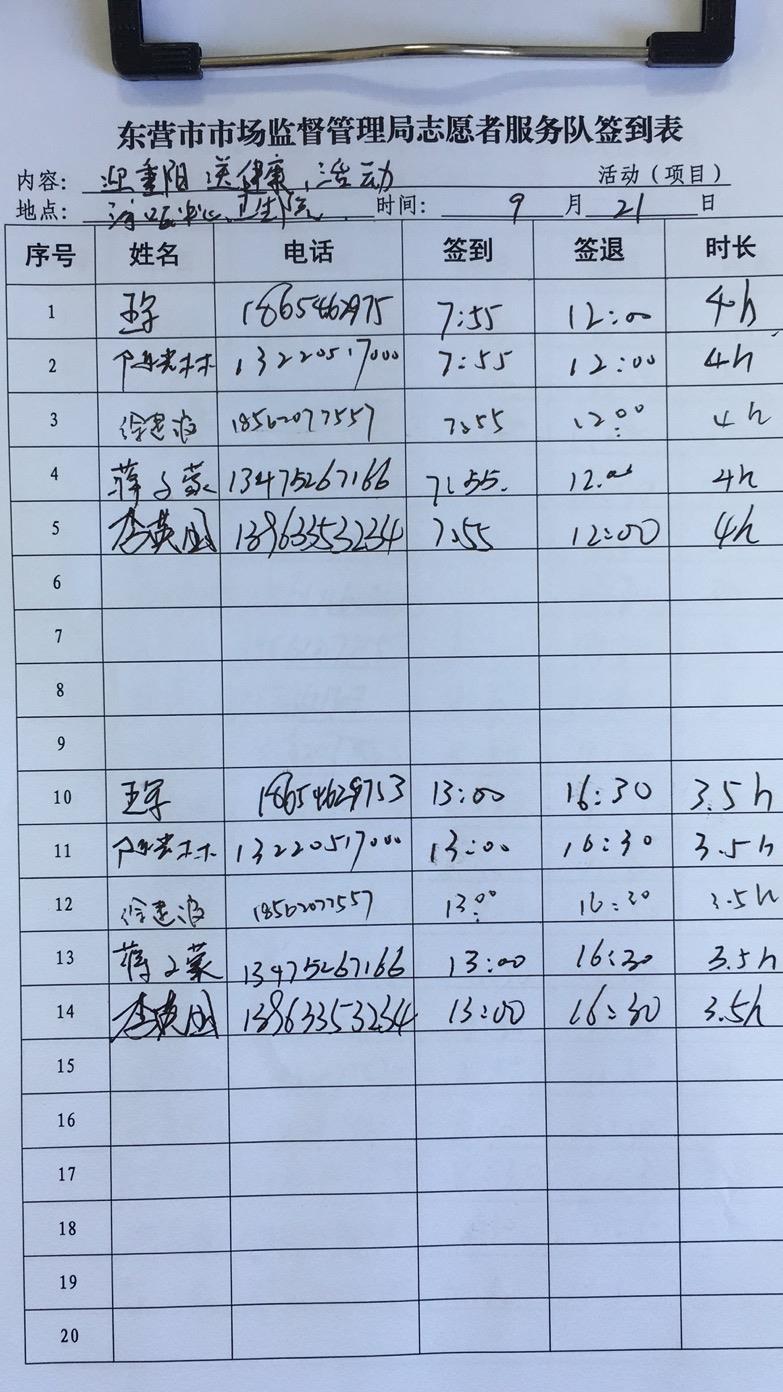 东营市市场监督管理局志愿者服务队签到表
内容: 迎重阳 送健康 活动 活动(项目)
地点: 卫生院 时间: 9 月 21 日
序号 姓名 电话 签到 签退 时长
1 王宇 1865462975 7:55 12:00 4h
2 13220517000 7:55 12:00 4h
3 徐建波 18562077557 7:55 12:00 4h
4 蒋文蒙 13475267166 7:55 12:00 4h
5 李英国 13963353234 7:55 12:00 4h
6
7
8
9
10 王宇 18654629753 13:00 16:30 3.5h
11 13220517000 13:00 16:30 3.5h
12 徐建波 18562077557 13:00 16:30 3.5h
13 蒋文蒙 13475267166 13:00 16:30 3.5h
14 李英国 13963353234 13:00 16:30 3.5h
15
16
17
18
19
20